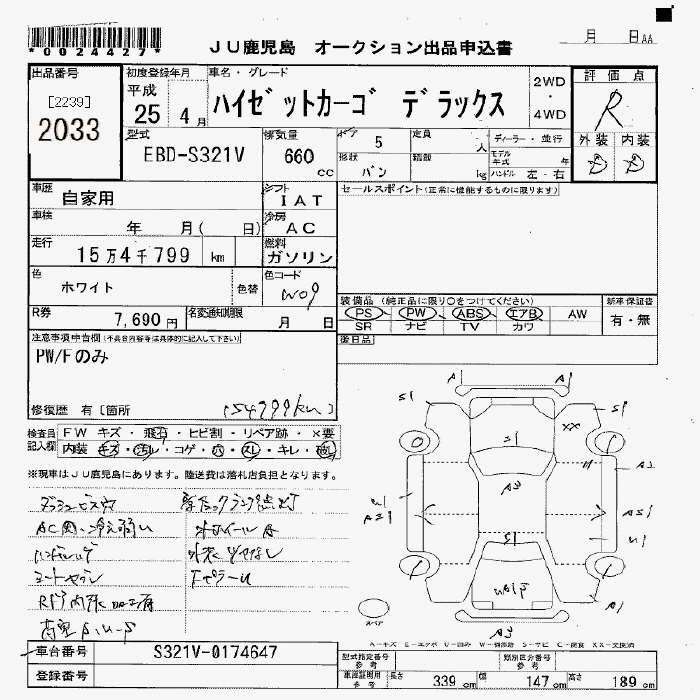 *0024427*
JU鹿児島 オークション出品申込書
月 日AA
出品番号
[2239]
2033
初度登録年月
平成
25 4月
車名・グレード
ハイゼットカーゴ デラックス
2WD
・
4WD
評価点
R
外装 内装
D D
型式
EBD-S321V
排気量
660
cc
ドア 5
定員
人
ディーラー・並行
形状
バン
積載
kg
モデル年式 年
ハンドル 左・右
車歴
自家用
シフト
IAT
セールスポイント(正常に機能するものに限ります)
車検
年 月( 日)
冷房
AC
走行
15万4千799 km
燃料
ガソリン
色
ホワイト
色替
色コード
W09
R券
7,690円
名変通知期限
月 日
装備品 (純正品に限り○をつけてください)
PS PW ABS エアB AW
SR ナビ TV カワ
新車保証書
有・無
後日品
注意事項申告欄(不具合内容等は具体的に記入して下さい)
PW/Fのみ
修復歴 有〔箇所
(154799km)
検査員記入欄
FW キズ・飛石・ヒビ割・リペア跡・×要
内装 キズ・汚レ・コゲ・穴・スレ・キレ・
※現車はJU鹿児島にあります。陸送費は落札店負担となります。
ダッシュビス穴
AC 冷え弱い
外装ツヤなし
A1
A1
S1
S1
XX
S1
A3
A2
U1
A21
AS1
U1
S1
A1
A3
スペア
A-キズ E-エクボ U-凹み W-補修跡 S-サビ C-腐食 XX-交換済
車台番号
S321V-0174647
登録番号
型式指定番号
参考
類別区分番号
参考
車検証明用
参考
長さ 339 cm 幅 147 cm 高さ 189 cm